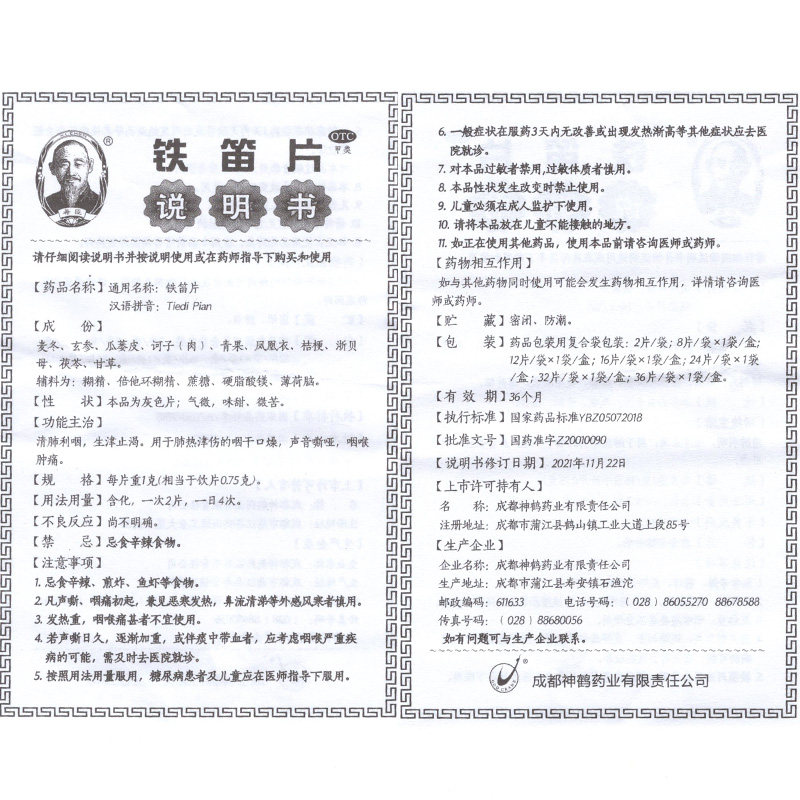 铁笛片
OTC
甲类
®
说明书
请仔细阅读说明书并按说明使用或在药师指导下购买和使用
【药品名称】通用名称：铁笛片
汉语拼音：Tiedi Pian
【成　　份】
麦冬、玄参、瓜蒌皮、诃子（肉）、青果、凤凰衣、桔梗、浙贝
母、茯苓、甘草。
辅料为：糊精、倍他环糊精、蔗糖、硬脂酸镁、薄荷脑。
【性　　状】本品为灰色片；气微，味甜、微苦。
【功能主治】
清肺利咽，生津止渴。用于肺热津伤的咽干口燥，声音嘶哑，咽喉
肿痛。
【规　　格】每片重1克(相当于饮片0.75克)。
【用法用量】含化，一次2片，一日4次。
【不良反应】尚不明确。
【禁　　忌】忌食辛辣食物。
【注意事项】
1. 忌食辛辣、煎炸、鱼虾等食物。
2. 凡声嘶、咽痛初起，兼见恶寒发热，鼻流清涕等外感风寒者慎用。
3. 发热重，咽喉痛甚者不宜使用。
4. 若声嘶日久，逐渐加重，或伴痰中带血者，应考虑咽喉严重疾
病的可能，需及时去医院就诊。
5. 按照用法用量服用，糖尿病患者及儿童应在医师指导下服用。
6. 一般症状在服药3天内无改善或出现发热渐高等其他症状应去医
院就诊。
7. 对本品过敏者禁用,过敏体质者慎用。
8. 本品性状发生改变时禁止使用。
9. 儿童必须在成人监护下使用。
10. 请将本品放在儿童不能接触的地方。
11. 如正在使用其他药品，使用本品前请咨询医师或药师。
【药物相互作用】
如与其他药物同时使用可能会发生药物相互作用，详情请咨询医
师或药师。
【贮　　藏】密闭、防潮。
【包　　装】药品包装用复合袋包装：2片/袋；8片/袋×1袋/盒；
12片/袋×1袋/盒；16片/袋×1袋/盒；24片/袋×1袋
/盒；32片/袋×1袋/盒；36片/袋×1袋/盒。
【有 效 期】36个月
【执行标准】国家药品标准YBZ05072018
【批准文号】国药准字Z20010090
【说明书修订日期】2021年11月22日
【上市许可持有人】
名　　称：成都神鹤药业有限责任公司
注册地址：成都市蒲江县鹤山镇工业大道上段85号
【生产企业】
企业名称：成都神鹤药业有限责任公司
生产地址：成都市蒲江县寿安镇石渔沱
邮政编码：611633　电话号码：（028）86055270 88678588
传真号码：（028）88680056
如有问题可与生产企业联系。
®
成都神鹤药业有限责任公司